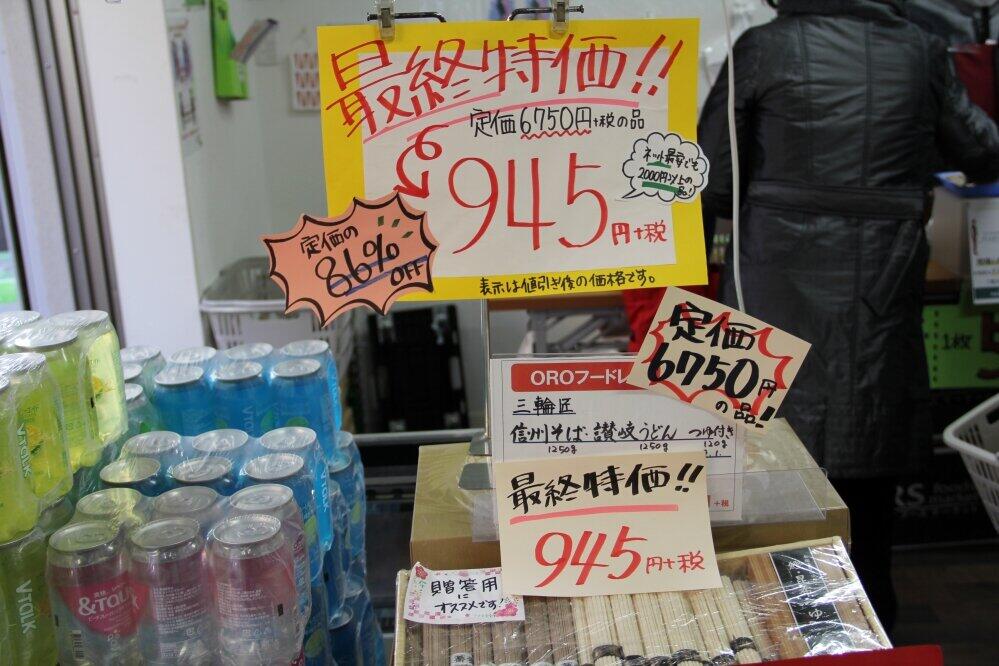 最終特価!!
定価6750円+税の品
945円+税
ネット最安でも
2000円以上の
品!
定価の
86%
OFF
表示は値引き後の価格です。
定価
6750円
の品!
OROフードレ
三輪匠
信州そば・讃岐うどん つゆ付き
1250g 1250g 120g
最終特価!!
945円+税
+税
贈答用
に
オススメです!
1枚
V!TALK
&TALK
V!TALK